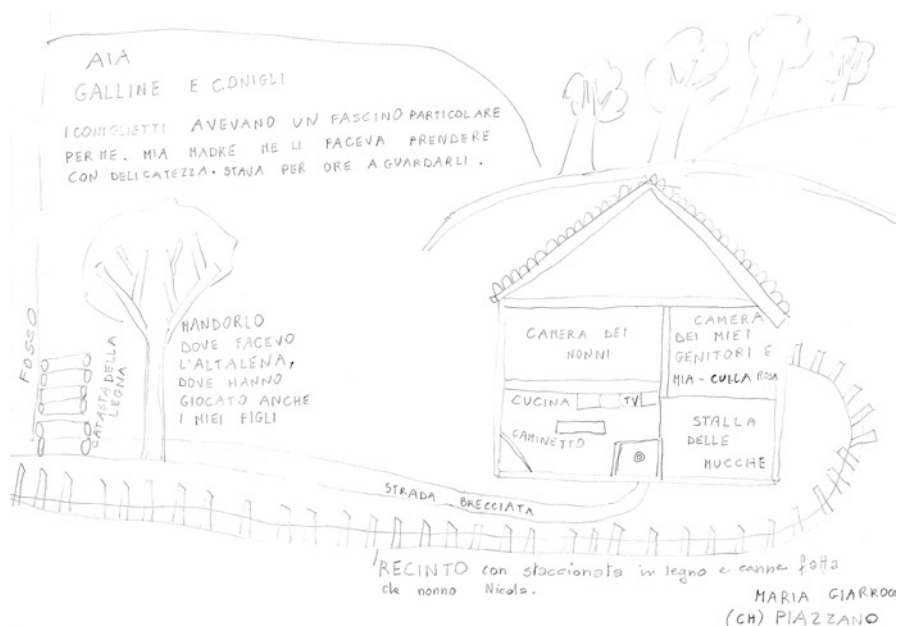 AIA
GALLINE E CONIGLI
I CONIGLIETTI AVEVANO UN FASCINO PARTICOLARE
PER ME. MIA MADRE ME LI FACEVA PRENDERE
CON DELICATEZZA. STAVA PER ORE A GUARDARLI.
FOSSO
CATASTA DELLA
LEGNA
MANDORLO
DOVE FACEVO
L'ALTALENA,
DOVE HANNO
GIOCATO ANCHE
I MIEI FIGLI
CAMERA DEI
NONNI
CAMERA
DEI MIEI
GENITORI E
MIA - CULLA ROSA
CUCINA TV
CAMINETTO
STALLA
DELLE
MUCCHE
STRADA BRECCIATA
RECINTO con staccionata in legno e canne fatta
da nonno Nicola.
MARIA
(CH) PIAZZANO